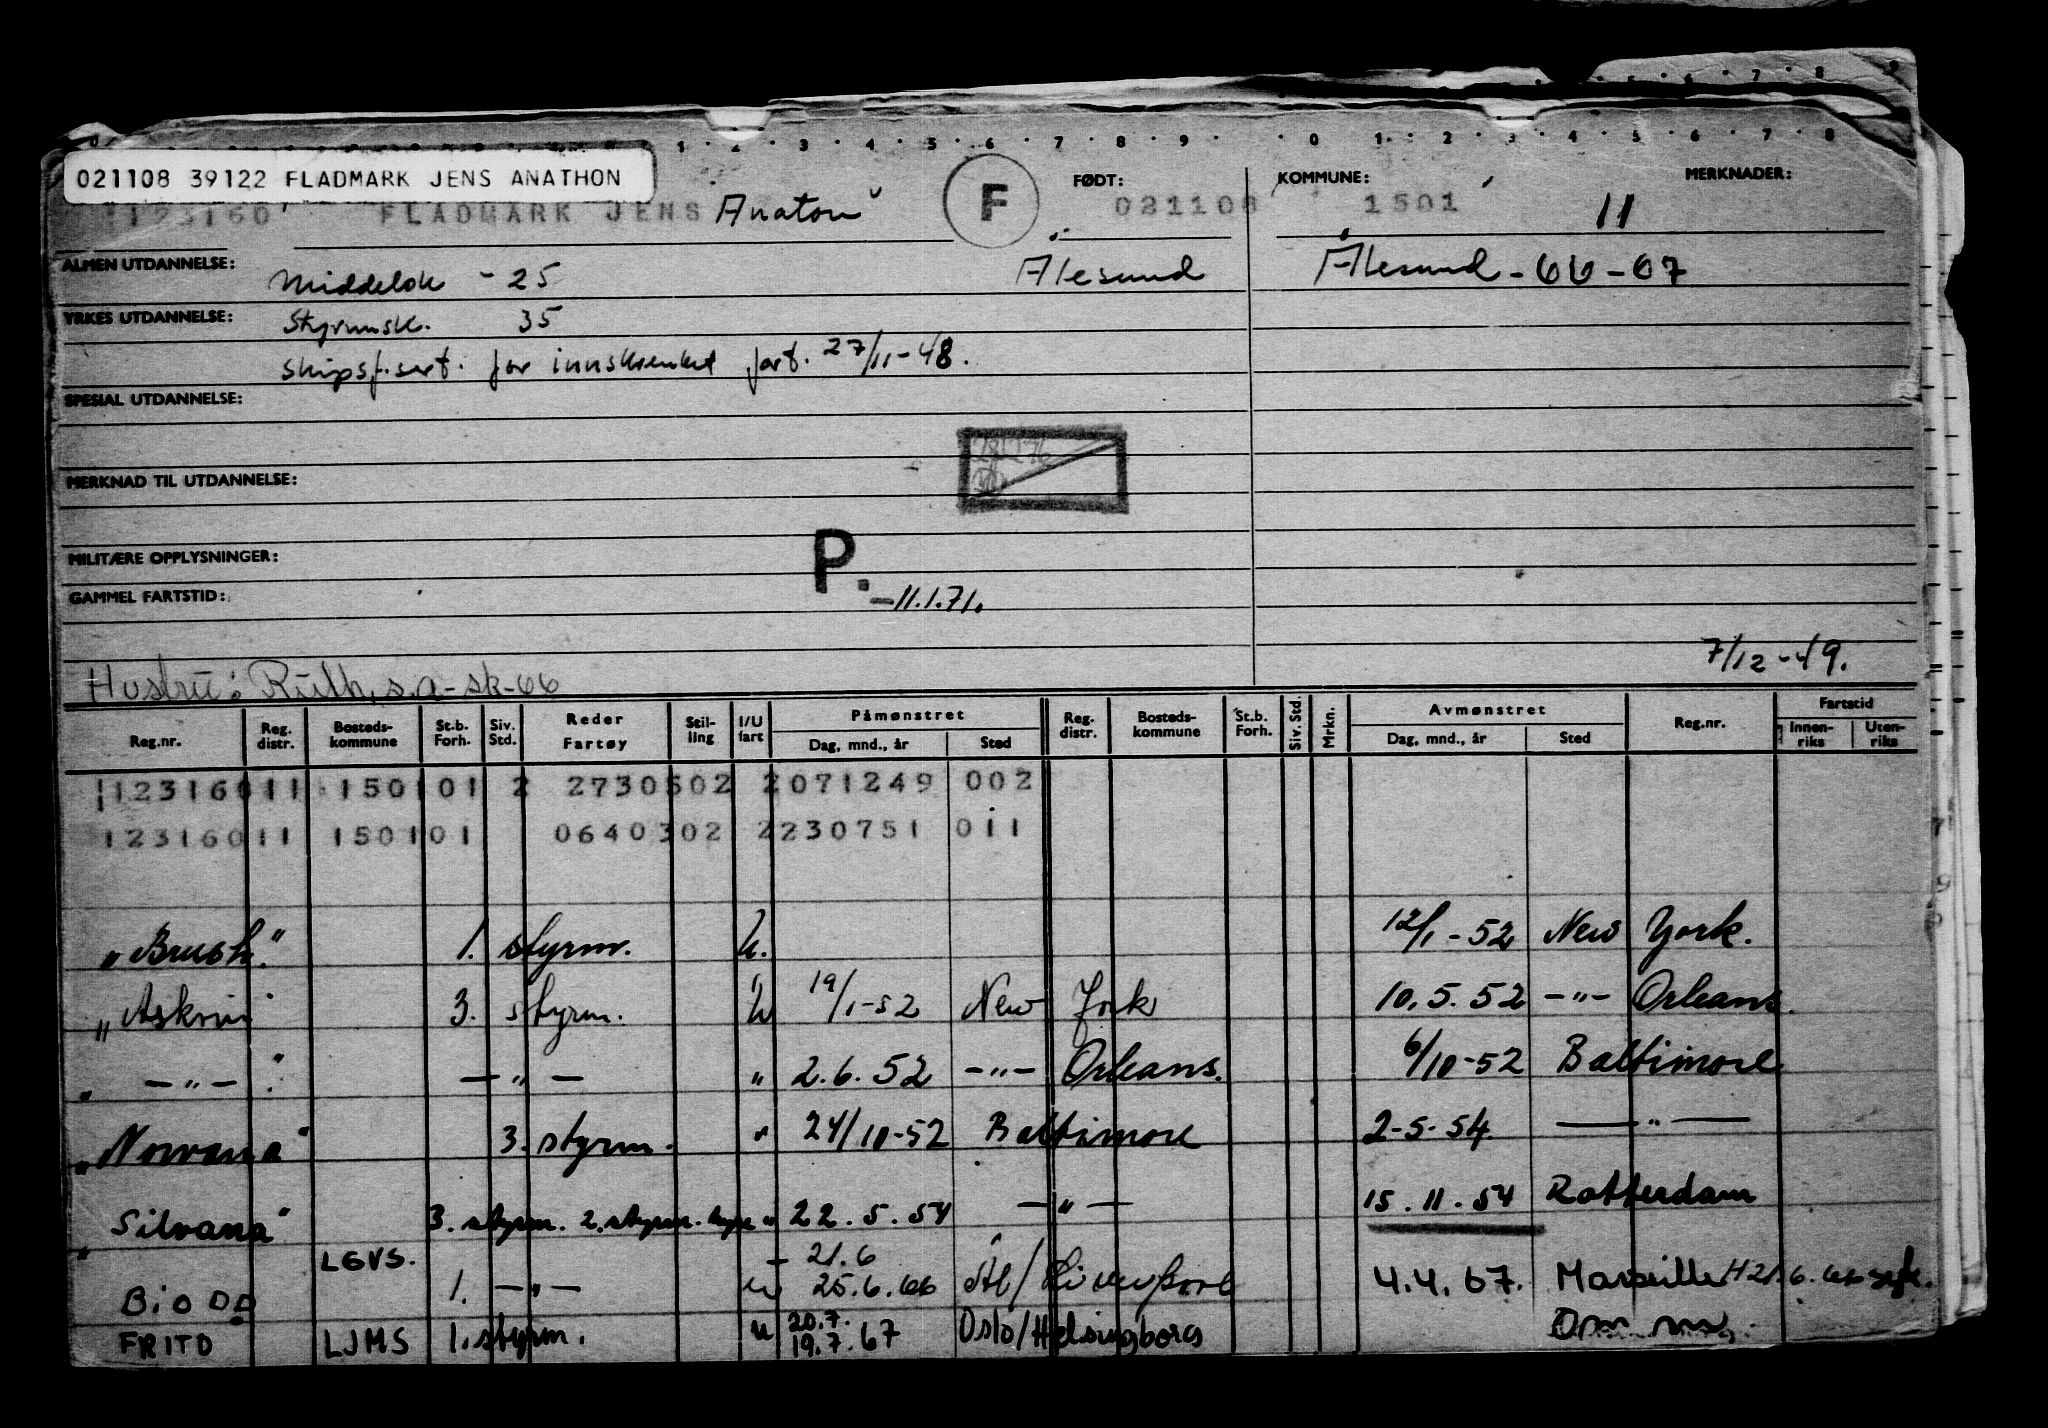 021108 39122 FLADMARK JENS ANATHON
123160 FLADMARK JENS Anaton F FØDT: 021108 KOMMUNE: 1501 MERKNADER: 11
ALMEN UTDANNELSE: Middelsk - 25 Ålesund Ålesund - 66 - 67
YRKES UTDANNELSE: Styrmsk. 35
skipsf.sert. for innskrenket fart. 27/11-48.
SPESIAL UTDANNELSE:
MERKNAD TIL UTDANNELSE:
MILITÆRE OPPLYSNINGER:
P.
GAMMEL FARTSTID: -11.1.71.
7/12-49.
Hustru: Ruth, s.a-sk-66
Reg.nr. Reg. distr. Bosteds-kommune St.b. Forh. Siv. Std. Reder Fartøy Stil-ling I/U fart Påmønstret Dag, mnd., år Sted Reg. distr. Bosteds-kommune St.b. Forh. Siv. Std. Mrkn. Avmønstret Dag, mnd., år Sted Reg.nr. Fartstid Innen-riks Uten-riks
12316011 150101 2 2730502 2071249 002
12316011 150101 0640302 2230751 011
"Brush." 1. styrm. u. 12/1-52 New York.
"Askvin" 3. styrm. u 19/1-52 New York 10.5.52 -"- Orleans.
" -"- " -"- " 2.6.52 -"- Orleans. 6/10-52 Baltimore
"Norvana" 3. styrm. " 24/10-52 Baltimore 2-5-54. -"-
"Silvana" 3. styrm. 2. styrm. " 22.5.54 -"- 15.11.54 Rotterdam
LGVS. - 21.6
BiODD 1. -"- u 25.6.66 Ål/Liverpool 4.4.67. Marseille
20.7.
FRITO LJMS 1. styrm. u 19.7.67 Oslo/Helsingborg